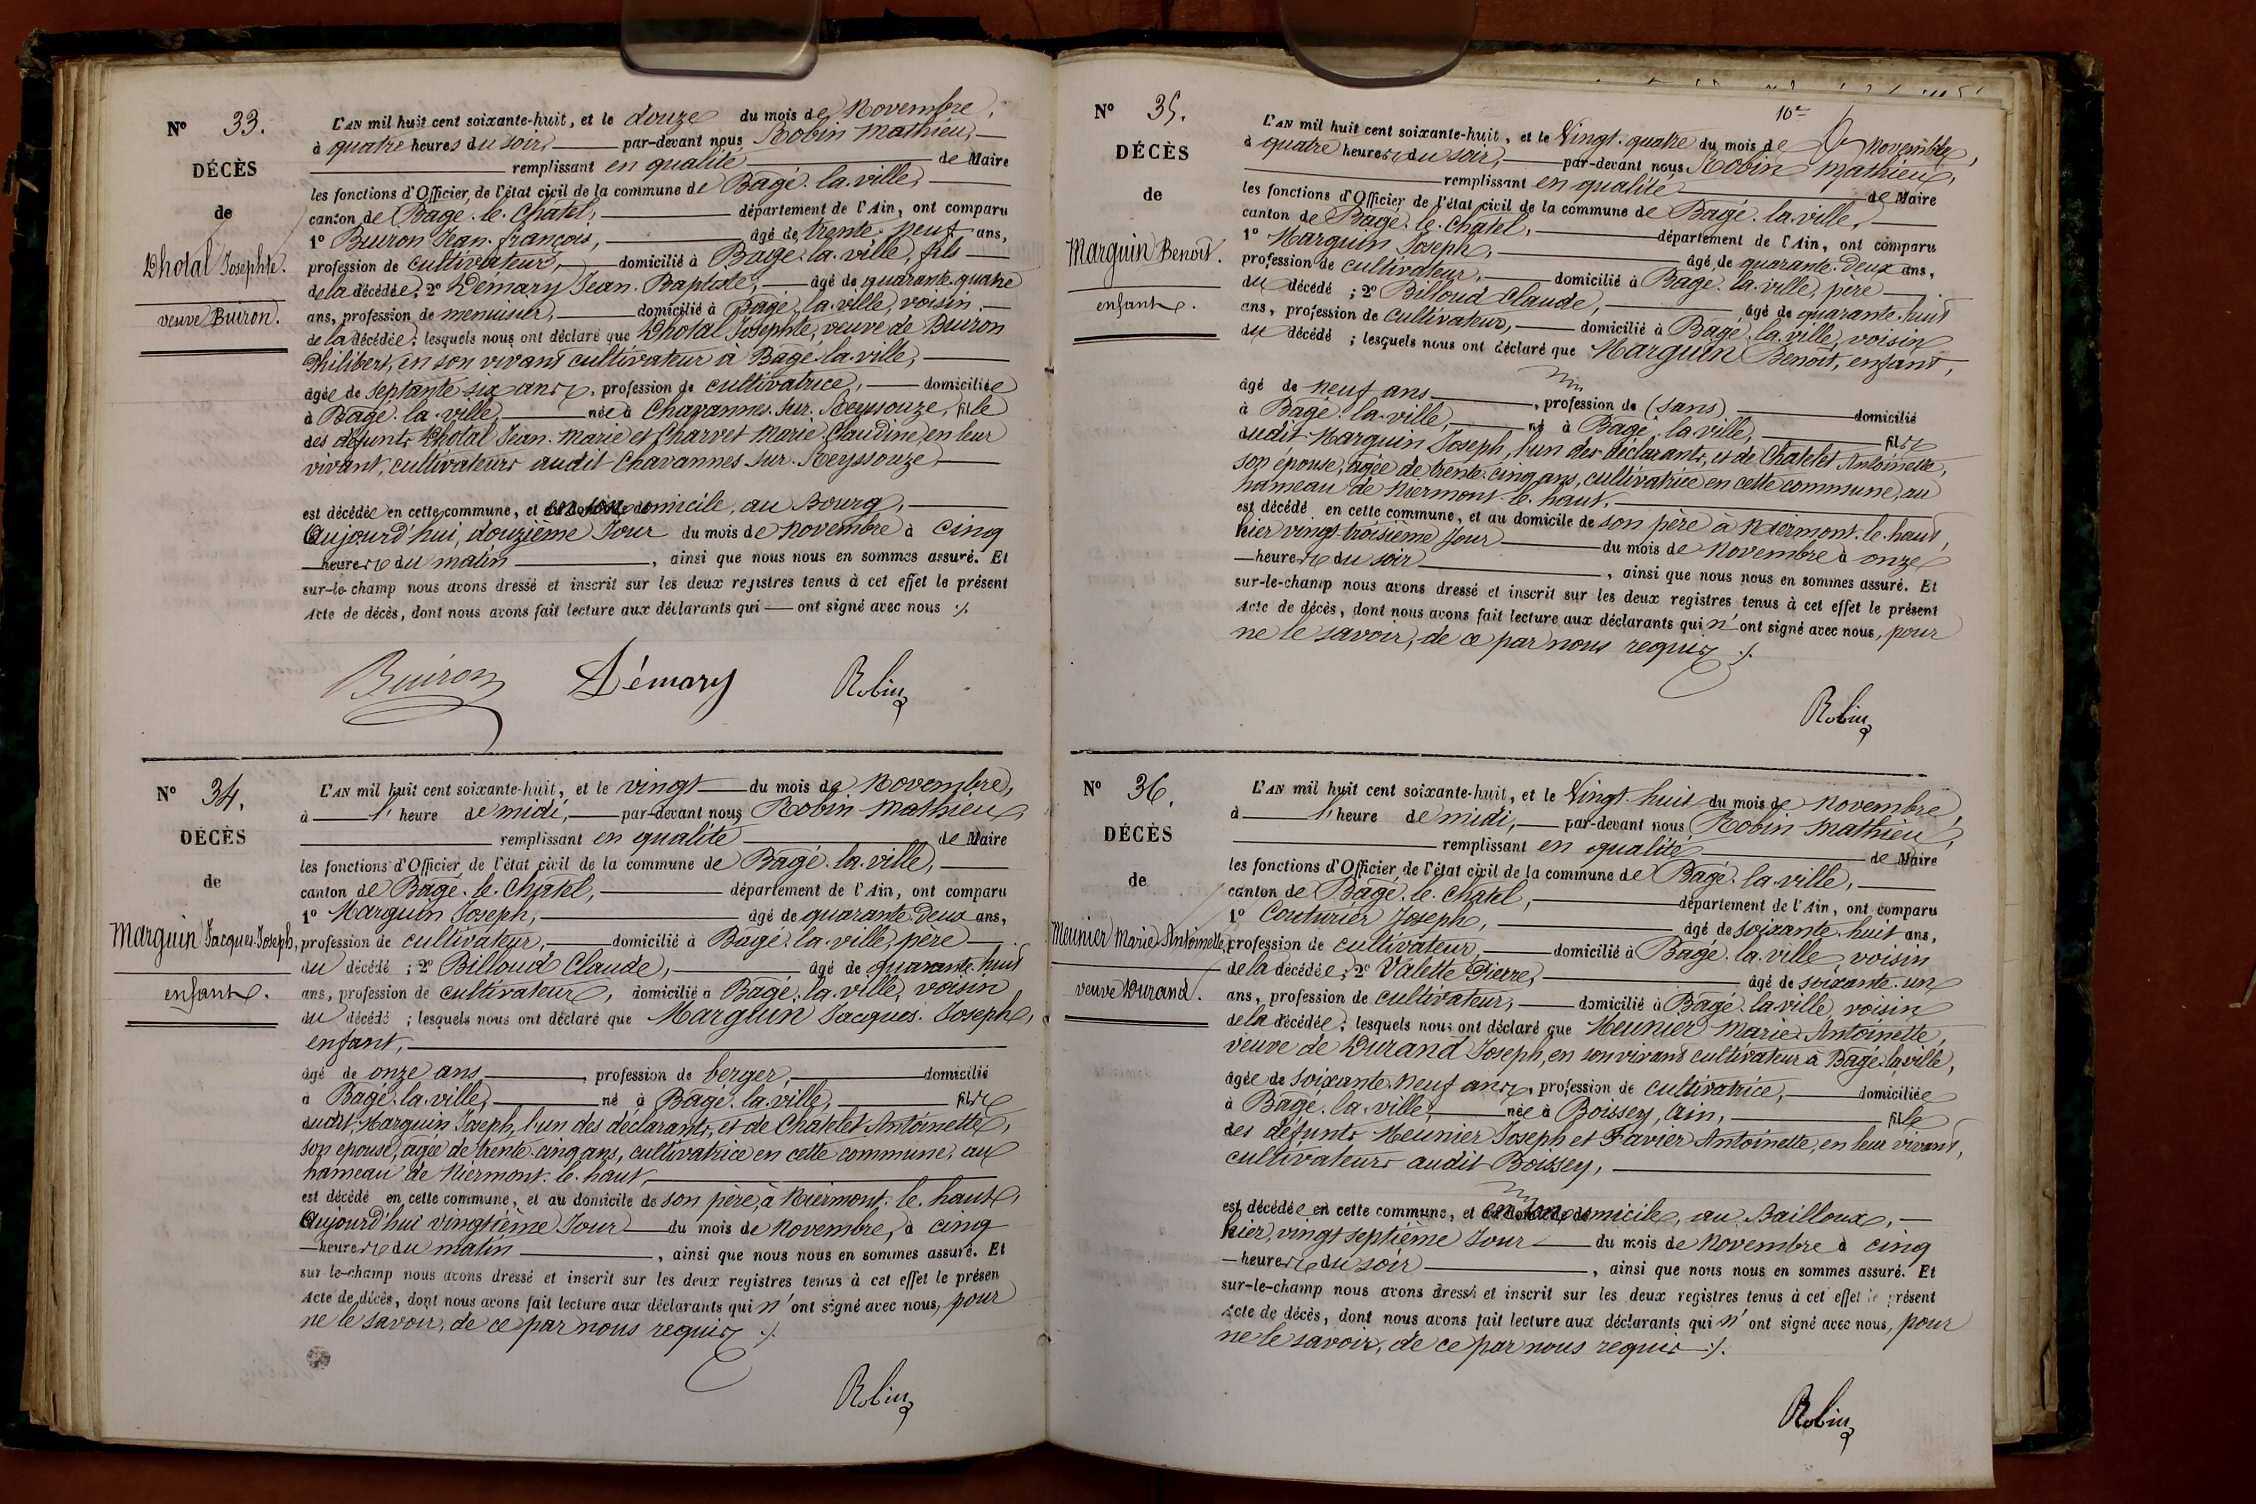 Nº 33.
DÉCÈS
de
Dhotal Josephte.
veuve Buiron.
L'AN mil huit cent soixante-huit, et le douze du mois de Novembre,
à quatre heures du soir, par-devant nous Robin Mathieu,
remplissant en qualité de Maire
les fonctions d'Officier de l'état civil de la commune de Bagé-la-ville,
canton de Bagé-le-Châtel, département de l'Ain, ont comparu
1º Buiron Jean-françois, âgé de trente-neuf ans,
profession de cultivateur, domicilié à Bagé-la-ville, fils
de la décédée; 2º Démary Jean-Baptiste, âgé de quarante-quatre
ans, profession de menuisier, domicilié à Bagé-la-ville, voisin
de la décédée; lesquels nous ont déclaré que Dhotal Josephte, veuve de Buiron
Philibert, en son vivant cultivateur à Bagé-la-ville,
âgée de septante-six ans, profession de cultivatrice, domiciliée
à Bagé-la-ville, née à Chavannes-sur-Reyssouze, fille
des défunts Dhotal Jean-Marie et Charvet Marie-Claudine, en leur
vivant, cultivateurs audit Chavannes-sur-Reyssouze,
est décédée en cette commune, et en son domicile, au Bourg,
Aujourd'hui, douzième Jour du mois de Novembre à cinq
heures du matin, ainsi que nous nous en sommes assuré. Et
sur-le-champ nous avons dressé et inscrit sur les deux registres tenus à cet effet le présent
Acte de décès, dont nous avons fait lecture aux déclarants qui ont signé avec nous ./.
Buiron Démary Robin
Nº 34.
DÉCÈS
de
Marguin Jacques-Joseph,
enfant.
L'AN mil huit cent soixante-huit, et le vingt du mois de Novembre,
à l'heure de midi, par-devant nous Robin Mathieu
remplissant en qualité de Maire
les fonctions d'Officier de l'état civil de la commune de Bagé-la-ville,
canton de Bagé-le-Châtel, département de l'Ain, ont comparu
1º Marguin Joseph, âgé de quarante-deux ans,
profession de cultivateur, domicilié à Bagé-la-ville, père
du décédé; 2º Billoud Claude, âgé de quarante-huit
ans, profession de cultivateur, domicilié à Bagé-la-ville, voisin
du décédé; lesquels nous ont déclaré que Marguin Jacques-Joseph,
enfant,
âgé de onze ans, profession de berger, domicilié
à Bagé-la-ville, né à Bagé-la-ville, fils
dudit Marguin Joseph, l'un des déclarants, et de Chatelet Antoinette,
son épouse, âgée de trente-cinq ans, cultivatrice en cette commune, au
hameau de Niermont-le-haut,
est décédé en cette commune, et au domicile de son père, à Niermont-le-haut,
Aujourd'hui vingtième Jour du mois de Novembre, à cinq
heures du matin, ainsi que nous nous en sommes assuré. Et
sur-le-champ nous avons dressé et inscrit sur les deux registres tenus à cet effet le présen
Acte de décès, dont nous avons fait lecture aux déclarants qui n'ont signé avec nous, pour
ne le savoir, de ce par nous requis ./.
Robin
10e
Nº 35.
DÉCÈS
de
Marguin Benoît.
enfant.
L'AN mil huit cent soixante-huit, et le Vingt-quatre du mois de Novembre,
à quatre heures du soir, par-devant nous Robin Mathieu,
remplissant en qualité de Maire
les fonctions d'Officier de l'état civil de la commune de Bagé-la-ville,
canton de Bagé-le-Châtel, département de l'Ain, ont comparu
1º Marguin Joseph, âgé de quarante-deux ans,
profession de cultivateur, domicilié à Bagé-la-ville, père
du décédé; 2º Billoud Claude, âgé de quarante-huit
ans, profession de cultivateur, domicilié à Bagé-la-ville, voisin
du décédé; lesquels nous ont déclaré que Marguin Benoît, enfant,
âgé de neuf ans, profession de (sans) domicilié
à Bagé-la-ville, né à Bagé-la-ville, fils
dudit Marguin Joseph, l'un des déclarants, et de Chatelet Antoinette,
son épouse, âgée de trente-cinq ans, cultivatrice en cette commune, au
hameau de Niermont-le-haut,
est décédé en cette commune, et au domicile de son père à Niermont-le-haut,
hier vingt-troisième Jour du mois de Novembre à onze
heures du soir, ainsi que nous nous en sommes assuré. Et
sur-le-champ nous avons dressé et inscrit sur les deux registres tenus à cet effet le présent
Acte de décès, dont nous avons fait lecture aux déclarants qui n'ont signé avec nous, pour
ne le savoir, de ce par nous requis ./.
Robin
Nº 36.
DÉCÈS
de
Meunier Marie-Antoinette,
veuve Durand.
L'AN mil huit cent soixante-huit, et le Vingt-huit du mois de Novembre,
à l'heure de midi, par-devant nous Robin Mathieu,
remplissant en qualité de Maire
les fonctions d'Officier de l'état civil de la commune de Bagé-la-ville,
canton de Bagé-le-Châtel, département de l'Ain, ont comparu
1º Couturier Joseph, âgé de soixante-huit ans,
profession de cultivateur, domicilié à Bagé-la-ville, voisin
de la décédée; 2º Valette Pierre, âgé de soixante-un
ans, profession de cultivateur, domicilié à Bagé-la-ville, voisin
de la décédée; lesquels nous ont déclaré que Meunier Marie-Antoinette,
veuve de Durand Joseph, en son vivant cultivateur à Bagé-la-ville,
âgée de soixante-neuf ans, profession de cultivatrice, domiciliée
à Bagé-la-ville, née à Boissey, Ain, fille
des défunts Meunier Joseph et Favier Antoinette, en leur vivant,
cultivateurs audit Boissey,
est décédée en cette commune, et en son domicile, au Bailloux,
hier, vingt-septième Jour du mois de Novembre à cinq
heures du soir, ainsi que nous nous en sommes assuré. Et
sur-le-champ nous avons dressé et inscrit sur les deux registres tenus à cet effet le présent
Acte de décès, dont nous avons fait lecture aux déclarants qui n'ont signé avec nous, pour
ne le savoir, de ce par nous requis ./.
Robin